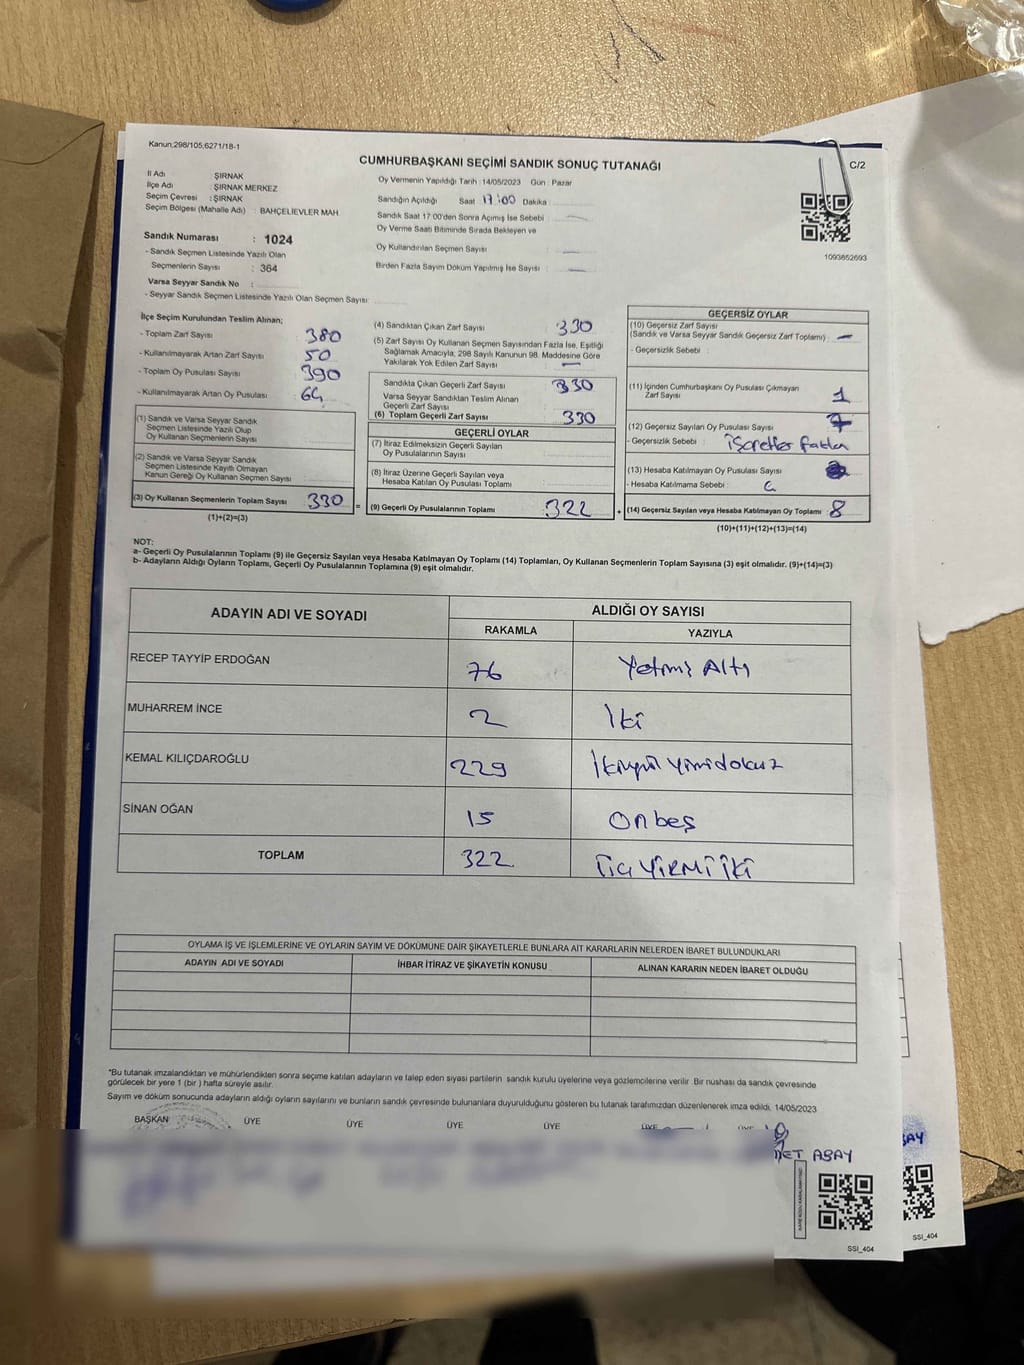 Kanun;298/105,6271/18-1
CUMHURBAŞKANI SEÇİMİ SANDIK SONUÇ TUTANAĞI
C/2
İl Adı : ŞIRNAK
İlçe Adı : ŞIRNAK MERKEZ
Seçim Çevresi : ŞIRNAK
Seçim Bölgesi (Mahalle Adı) : BAHÇELİEVLER MAH.
Sandık Numarası : 1024
- Sandık Seçmen Listesinde Yazılı Olan
Seçmenlerin Sayısı : 364
Varsa Seyyar Sandık No :
- Seyyar Sandık Seçmen Listesinde Yazılı Olan Seçmen Sayısı
Oy Vermenin Yapıldığı Tarih : 14/05/2023 Gün : Pazar
Sandığın Açıldığı Saat 17:00 Dakika
Sandık Saat 17:00'den Sonra Açımış İse Sebebi
Oy Verme Saati Bitiminde Sırada Bekleyen ve
Oy Kullandırılan Seçmen Sayısı
Birden Fazla Sayım Döküm Yapılmış İse Sayısı
1093852693
İlçe Seçim Kurulundan Teslim Alınan;
- Toplam Zarf Sayısı : 380
- Kullanılmayarak Artan Zarf Sayısı : 50
- Toplam Oy Pusulası Sayısı : 390
- Kullanılmayarak Artan Oy Pusulası : 64
(1) Sandık ve Varsa Seyyar Sandık
Seçmen Listesinde Yazılı Olup
Oy Kullanan Seçmenlerin Sayısı
(2) Sandık ve Varsa Seyyar Sandık
Seçmen Listesinde Kayıtlı Olmayan
Kanun Gereği Oy Kullanan Seçmen Sayısı
(3) Oy Kullanan Seçmenlerin Toplam Sayısı 330
(1)+(2)=(3)
(4) Sandıktan Çıkan Zarf Sayısı 330
(5) Zarf Sayısı Oy Kullanan Seçmen Sayısından Fazla İse, Eşitliği
Sağlamak Amacıyla, 298 Sayılı Kanunun 98. Maddesine Göre
Yakılarak Yok Edilen Zarf Sayısı
Sandıkta Çıkan Geçerli Zarf Sayısı 330
Varsa Seyyar Sandıktan Teslim Alınan
Geçerli Zarf Sayısı
(6) Toplam Geçerli Zarf Sayısı 330
GEÇERLİ OYLAR
(7) İtiraz Edilmeksizin Geçerli Sayılan
Oy Pusulalarının Sayısı
(8) İtiraz Üzerine Geçerli Sayılan veya
Hesaba Katılan Oy Pusulası Toplamı
= (9) Geçerli Oy Pusulalarının Toplamı 322
GEÇERSİZ OYLAR
(10) Geçersiz Zarf Sayısı
(Sandık ve Varsa Seyyar Sandık Geçersiz Zarf Toplamı) : —
- Geçersizlik Sebebi :
(11) İçinden Cumhurbaşkanı Oy Pusulası Çıkmayan
Zarf Sayısı 1
(12) Geçersiz Sayılan Oy Pusulası Sayısı 7
- Geçersizlik Sebebi : işaretler fazla
(13) Hesaba Katılmayan Oy Pusulası Sayısı
- Hesaba Katılmama Sebebi :
+ (14) Geçersiz Sayılan veya Hesaba Katılmayan Oy Toplamı 8
(10)+(11)+(12)+(13)=(14)
NOT:
a- Geçerli Oy Pusulalarının Toplamı (9) ile Geçersiz Sayılan veya Hesaba Katılmayan Oy Toplamı (14) Toplamları, Oy Kullanan Seçmenlerin Toplam Sayısına (3) eşit olmalıdır. (9)+(14)=(3)
b- Adayların Aldığı Oyların Toplamı, Geçerli Oy Pusulalarının Toplamına (9) eşit olmalıdır.
ADAYIN ADI VE SOYADI ALDIĞI OY SAYISI
RAKAMLA YAZIYLA
RECEP TAYYİP ERDOĞAN 76 Yetmiş Altı
MUHARREM İNCE 2 İki
KEMAL KILIÇDAROĞLU 229 İkiyüz yirmidokuz
SİNAN OĞAN 15 Onbeş
TOPLAM 322 ÜÇ YİRMİ İKİ
OYLAMA İŞ VE İŞLEMLERİNE VE OYLARIN SAYIM VE DÖKÜMÜNE DAİR ŞİKAYETLERLE BUNLARA AİT KARARLARIN NELERDEN İBARET BULUNDUKLARI
ADAYIN ADI VE SOYADI İHBAR İTİRAZ VE ŞİKAYETİN KONUSU ALINAN KARARIN NEDEN İBARET OLDUĞU
*Bu tutanak imzalandıktan ve mühürlendikten sonra seçime katılan adayların ve talep eden siyasi partilerin sandık kurulu üyelerine veya gözlemcilerine verilir. Bir nüshası da sandık çevresinde
görülecek bir yere 1 (bir) hafta süreyle asılır.
Sayım ve döküm sonucunda adayların aldığı oyların sayılarını ve bunların sandık çevresinde bulunanlara duyurulduğunu gösteren bu tutanak tarafımızdan düzenlenerek imza edildi. 14/05/2023
BAŞKAN ÜYE ÜYE ÜYE ÜYE ÜYE ÜYE
ABAY
SSI_404
SSI_404